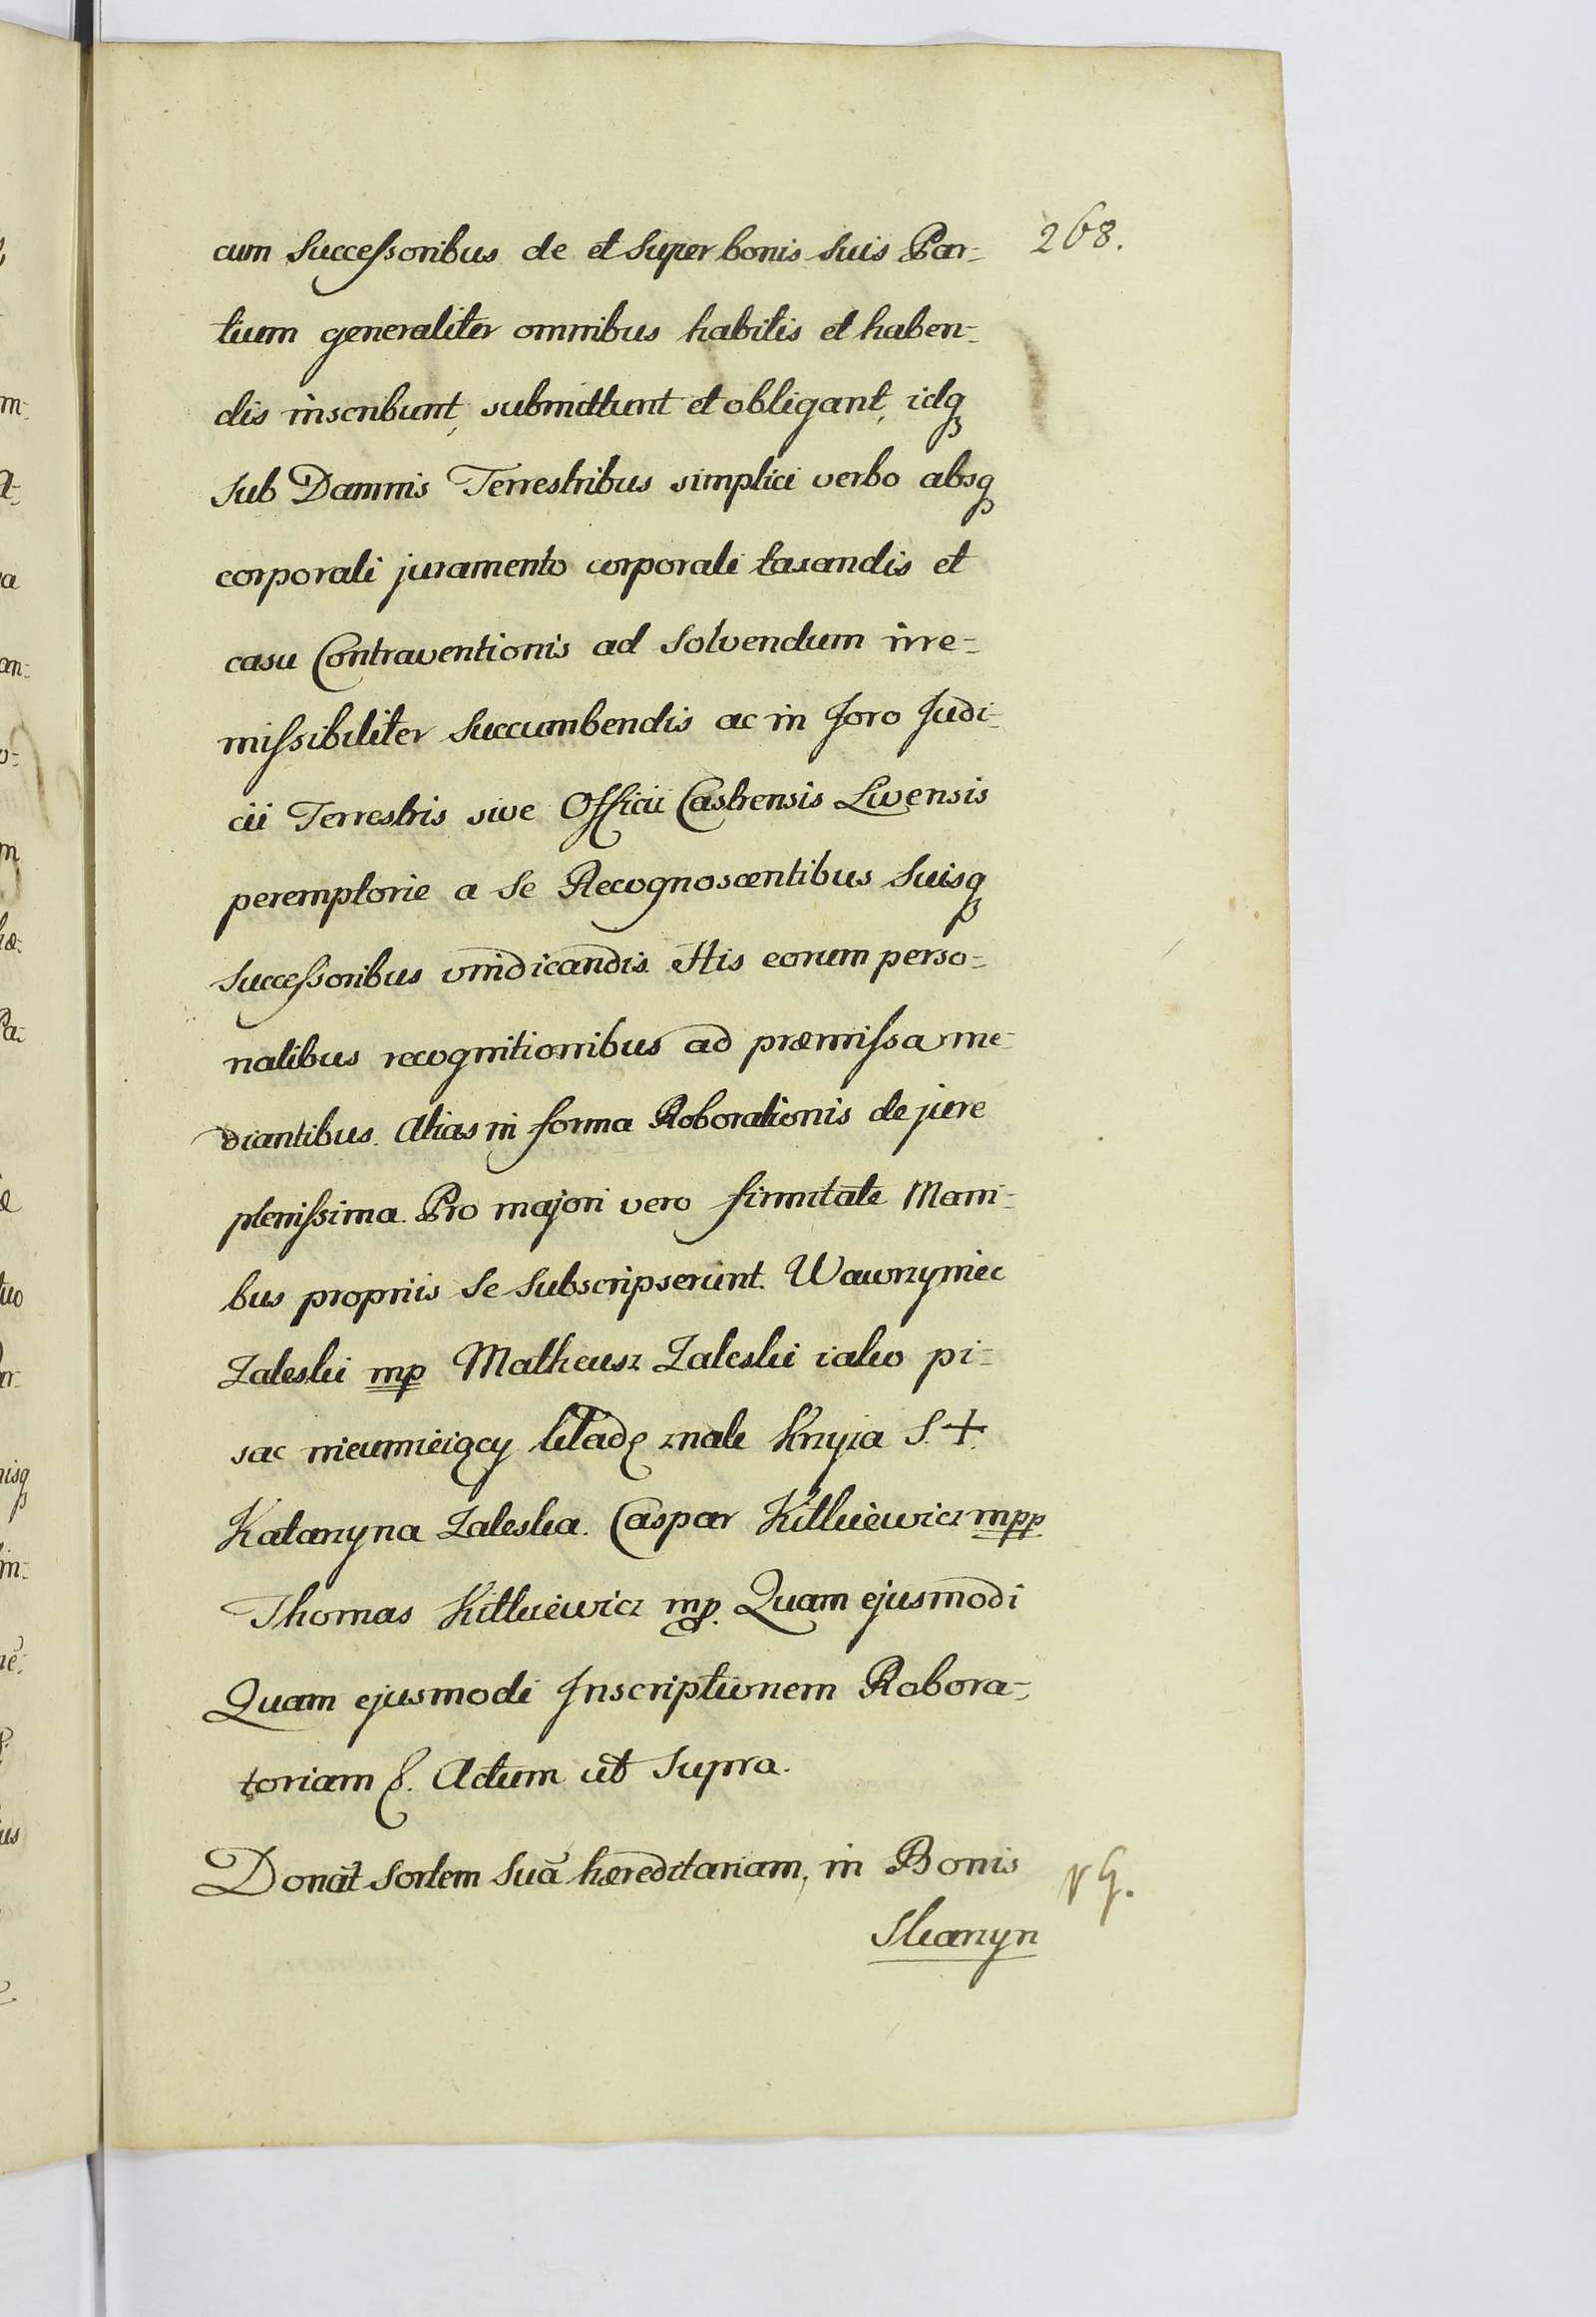 268.
cum Successoribus de et Super bonis Suis Par-
tium generaliter omnibus habitis et haben-
dis inscribunt, submittunt et obligant, idq
Sub Damnis Terrestribus simplici verbo absq
corporali juramento corporali taxandis et
casu Contraventionis ad Solvendum irre-
missibiliter Succumbendis ac in Foro Judi-
cii Terrestris sive Officii Castrensis Livensis
peremptorie a Se Recognoscentibus Suisq
Successoribus vindicandis. His eorum perso-
nalibus recognitionibus ad præmissa me-
diantibus. Alias in forma Roborationis de jure
plenissima. Pro majori vero firmitate Mani-
bus propriis Se Subscripserunt. Wawrzyniec
Zaleski mp Matheusz Zaleski iako pi-
sac nieumieiący kładę znak Krzyza S. +.
Katarzyna Zaleska. Caspar Kitkiewicz mpp
Thomas Kitkiewicz mp. Quam ejusmodi
Quam ejusmodi Inscriptionem Robora-
toriam &. Actum ut Supra.
Donāt Sortem Suā hæreditariam, in Bonis
Skarzyn